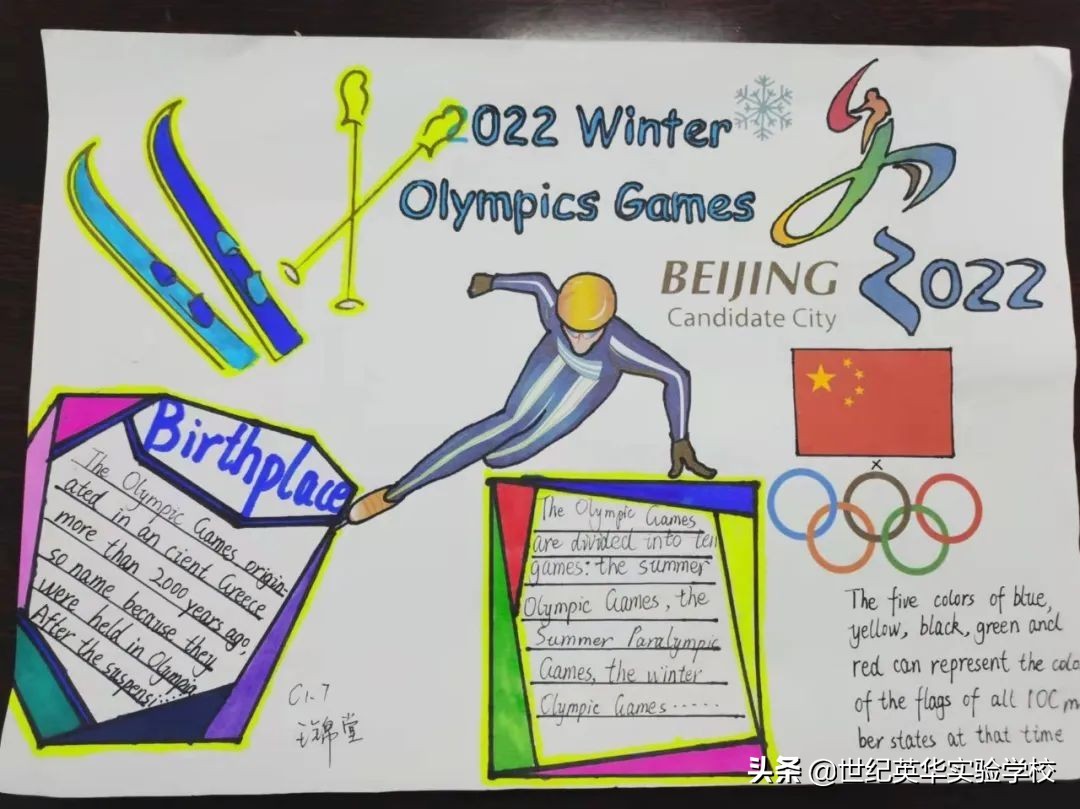 2022 Winter
Olympics Games
BEIJING
Candidate City
2022
Birthplace
The Olympic Games origin-
ated in an cient Greece
more than 2000 years ago,
so name because they
were held in Olympia
After the suspensi······
The Olympic Games
are divided into ten
games: the summer
Olympic Games, the
Summer Paralympic
Games, the winter
Olympic Games······
The five colors of blue,
yellow, black, green and
red can represent the colo
of the flags of all IOC m
ber states at that time
C1.7
王锦堂
头条 @世纪英华实验学校